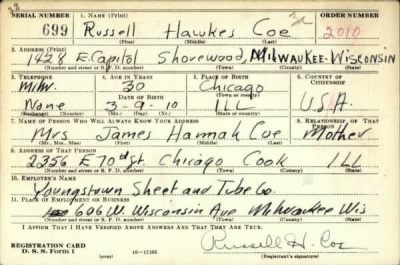 SERIAL NUMBER 1. NAME (Print) ORDER NUMBER
699 Russell Hawkes Coe 2010
(First) (Middle) (Last)
2. ADDRESS (Print)
1428 E. Capitol Shorewood, Milwaukee-Wisconsin
(Number and street or R. F. D. number) (Town) (County) (State)
3. TELEPHONE 4. AGE IN YEARS 5. PLACE OF BIRTH 6. COUNTRY OF CITIZENSHIP
Milw. 30 Chicago
(Exchange) DATE OF BIRTH (Town or county)
None 3-9-10 ILL U.S.A.
(Number) (Mo.) (Day) (Yr.) (State or country)
7. NAME OF PERSON WHO WILL ALWAYS KNOW YOUR ADDRESS 8. RELATIONSHIP OF THAT PERSON
Mrs James Hannah Coe Mother
(Mr., Mrs., Miss) (First) (Middle) (Last)
9. ADDRESS OF THAT PERSON
2356 E 70th St. Chicago Cook ILL
(Number and street or R. F. D. number) (Town) (County) (State)
10. EMPLOYER'S NAME
Youngstown Sheet and Tube Co.
11. PLACE OF EMPLOYMENT OR BUSINESS
606 W. Wisconsin Ave Milwaukee Wis
(Number and street or R. F. D. number) (Town) (County) (State)
I AFFIRM THAT I HAVE VERIFIED ABOVE ANSWERS AND THAT THEY ARE TRUE.
REGISTRATION CARD Russell H. Coe
D. S. S. Form 1 16-17105 (Registrant's signature)